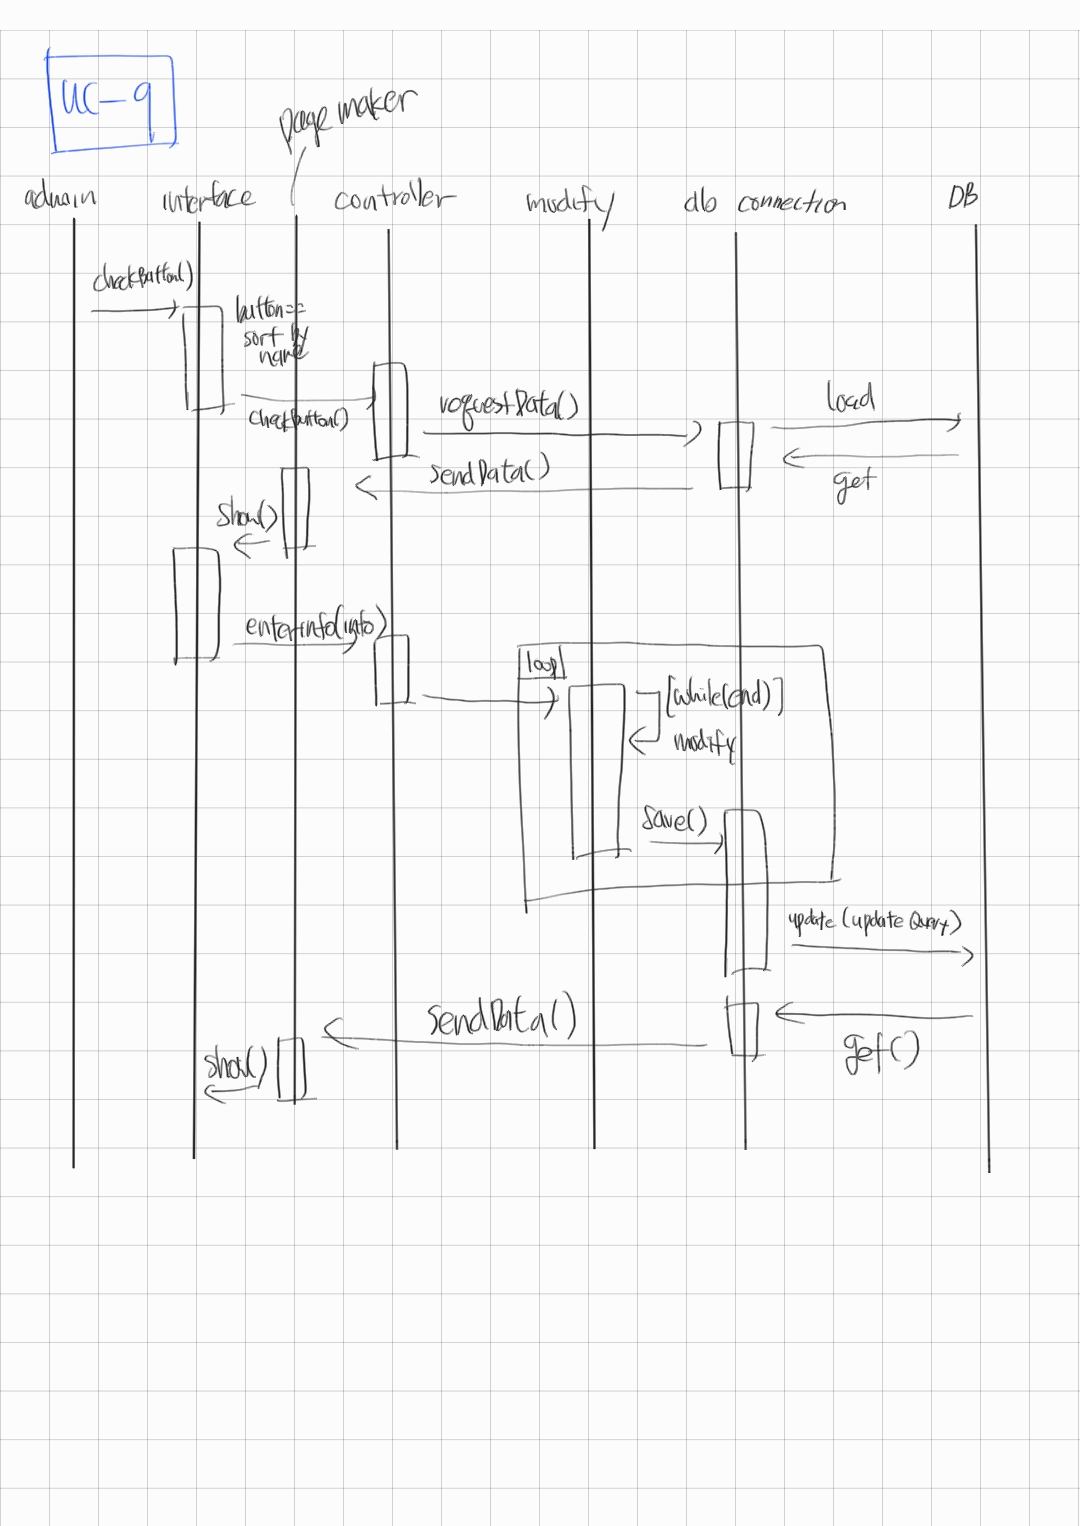 UC-9
page maker
admin interface controller modify db connection DB
checkButton()
button==
sort by
name
checkbutton()
requestData()
load
sendData()
get
show()
enterinfo(info)
loop
[while(end)]
modify
save()
update(updateQuery)
sendData()
get()
show()